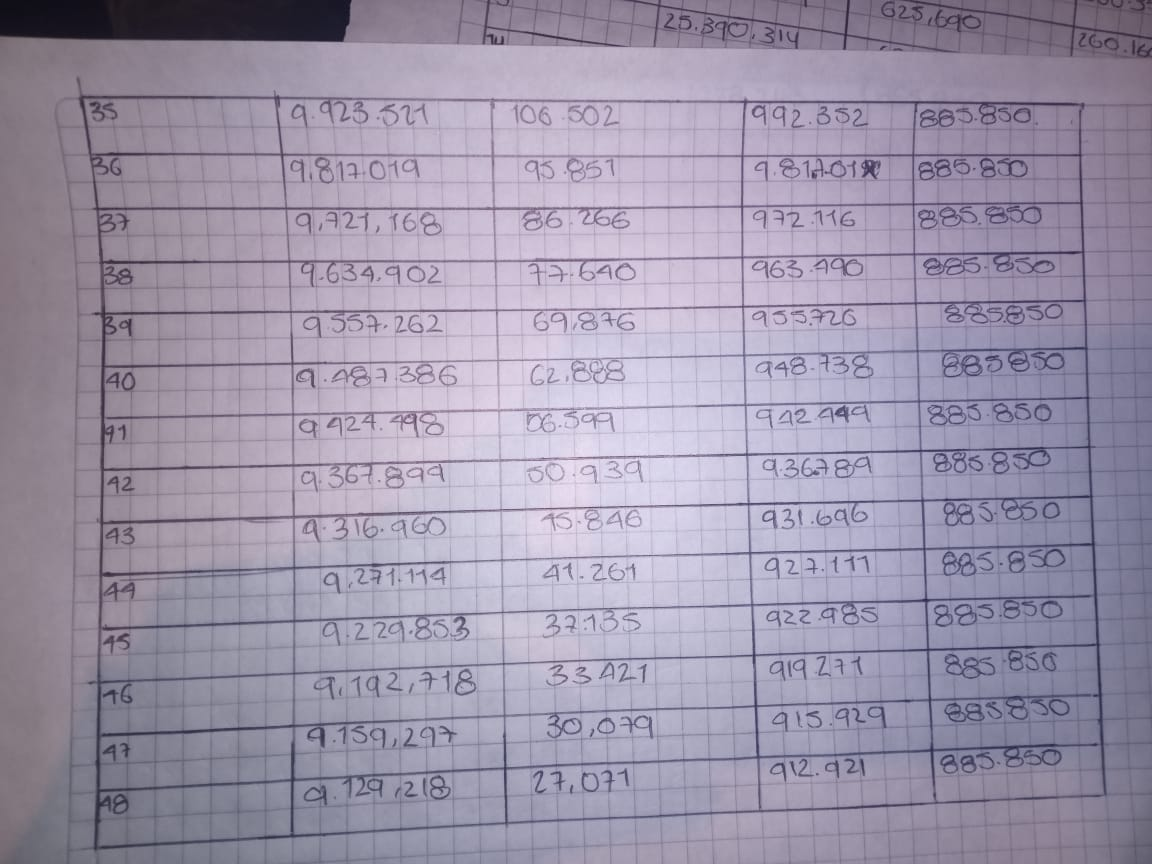 625,690
25.390,314
260.16
35 9.923.521 106.502 992.352 885.850.
36 9.817.019 95.851 9.817.01 885.850
37 9,721,168 86.266 972.116 885.850
38 9.634.902 77.640 963.490 885.850
39 9.557.262 69,876 955.726 885.850
40 9.487.386 62,888 948.738 885850
41 9424.498 56.599 942.449 885.850
42 9.367.899 50.939 9.36789 885.850
43 9.316.960 45.846 931.696 885.850
44 9,271.114 41.261 927.111 885.850
45 9.229.853 37.135 922.985 885.850
46 9,192,718 33421 919271 885.850
47 9.159,297 30,079 915.929 885850
48 9.129,218 27,071 912.921 885.850